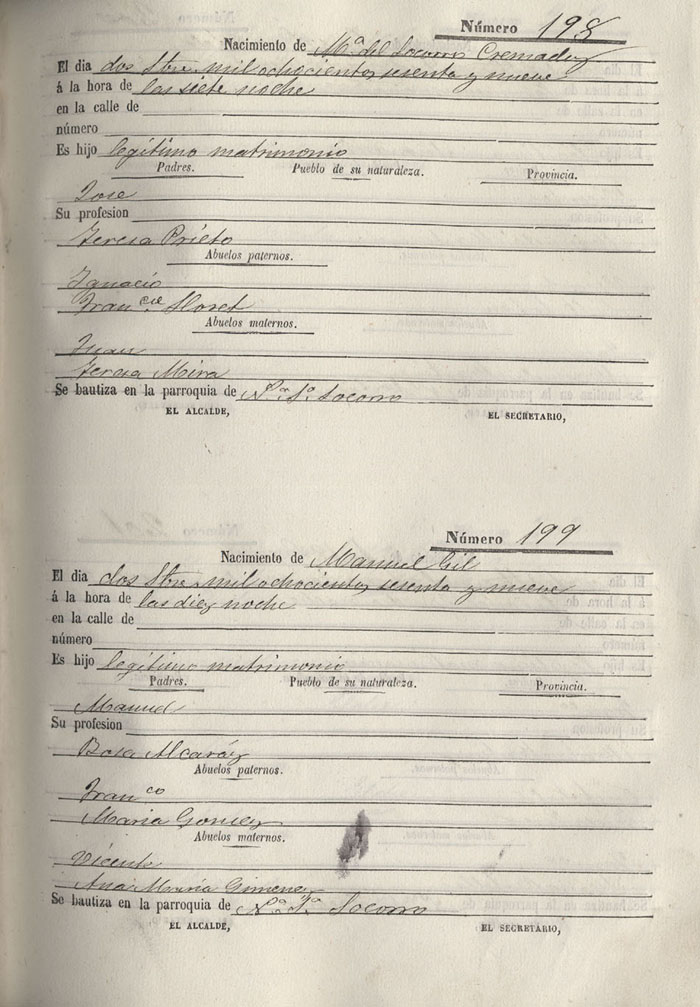 Número 198
Nacimiento de Mª del Socorro Cremades
El dia dos Sbre. mil ochocientos sesenta y nueve
á la hora de las siete noche
en la calle de
número
Es hijo legítimo matrimonio
Padres. Pueblo de su naturaleza. Provincia.
Jose
Su profesion
Teresa Prieto
Abuelos paternos.
Ignacio
Franᶜⁱˢᶜᵃ Lloret
Abuelos maternos.
Juan
Teresa Mira
Se bautiza en la parroquia de Nª. Sª. Socorro
EL ALCALDE, EL SECRETARIO,
Número 199
Nacimiento de Manuel Gil
El dia dos Sbre. mil ochocientos sesenta y nueve
á la hora de las diez noche
en la calle de
número
Es hijo legítimo matrimonio
Padres. Pueblo de su naturaleza. Provincia.
Manuel
Su profesion
Rosa Alcaráz
Abuelos paternos.
Franᶜᵒ
Maria Gomez
Abuelos maternos.
Vicente
Ana María Gimenez
Se bautiza en la parroquia de Nª. Sª. Socorro
EL ALCALDE, EL SECRETARIO,